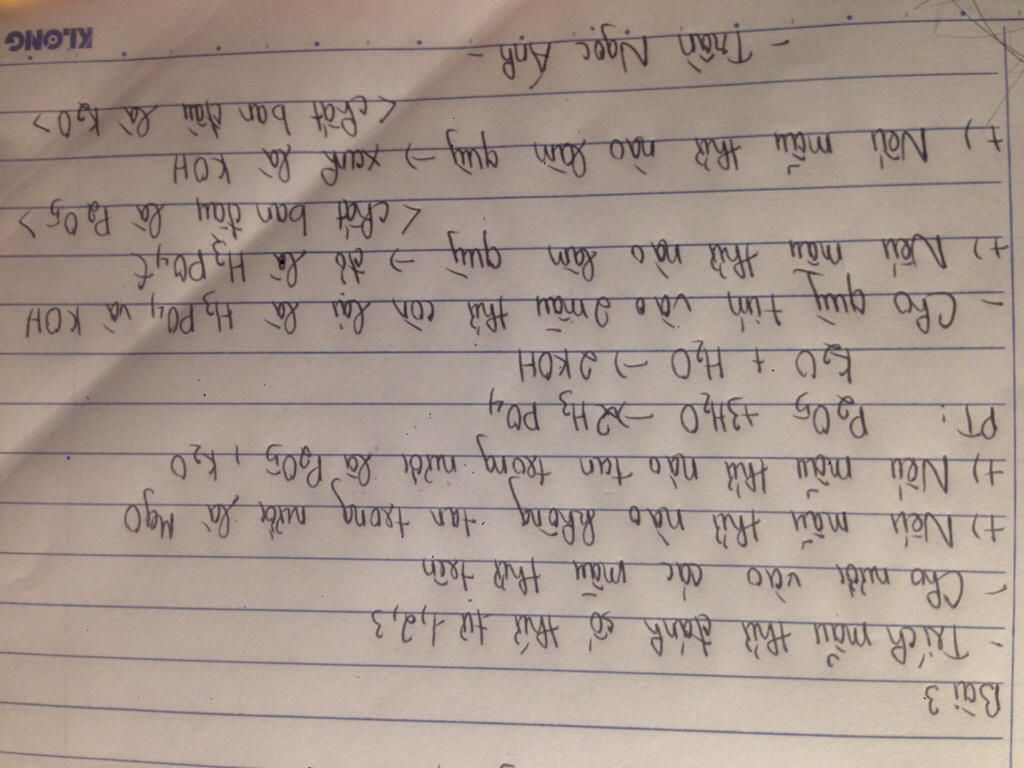 Bài 3
- Trích mẫu thử đánh số thứ tự 1,2,3
- Cho nước vào các mẫu thử trên
+) Nếu mẫu thử nào không tan trong nước là MgO
+) Nếu mẫu thử nào tan trong nước là P2O5, K2O
PT: P2O5 + 3H2O → 2H3PO4
K2O + H2O → 2KOH
- Cho quỳ tím vào 2 mẫu thử còn lại là H3PO4 và KOH
+) Nếu mẫu thử nào làm quỳ → đỏ là H3PO4
<chất ban đầu là P2O5>
+) Nếu mẫu thử nào làm quỳ → xanh là KOH
<chất ban đầu là K2O>
- Trần Ngọc Ánh -
KLONG